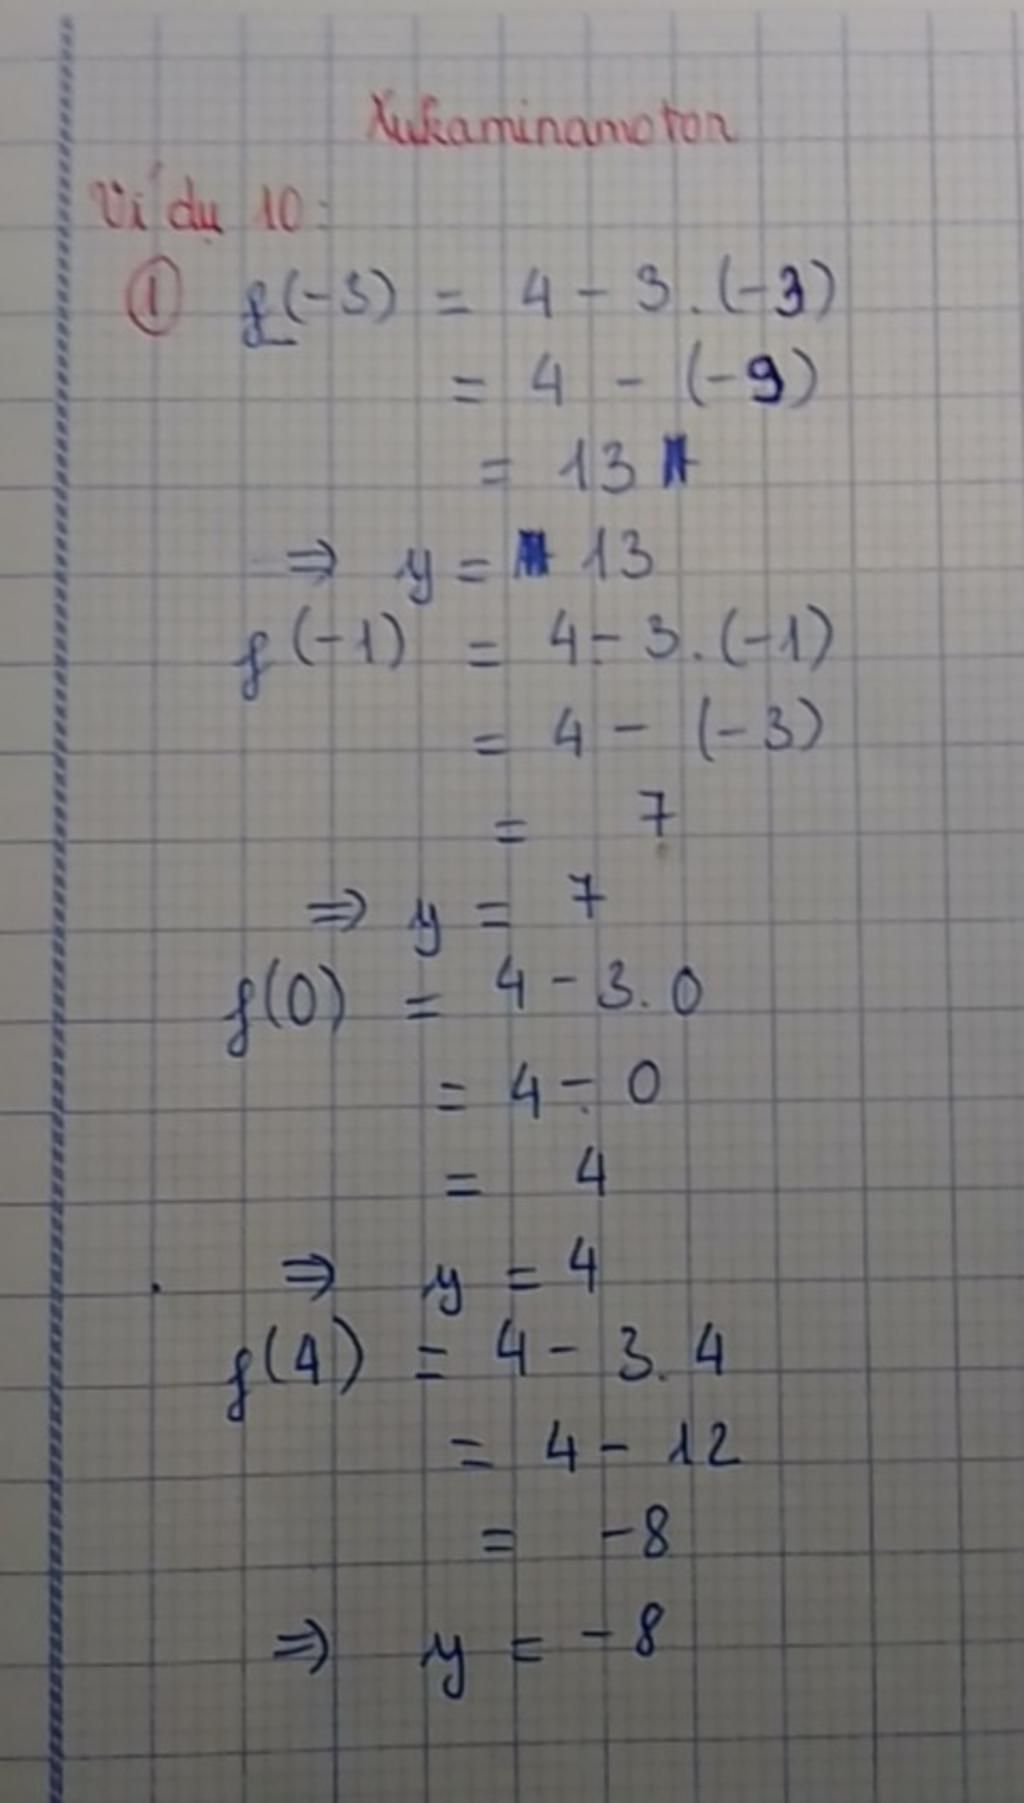 Xukaminamoton
Ví dụ 10:
① f(-3) = 4 - 3.(-3)
= 4 - (-9)
= 13
⇒ y = 13
f(-1) = 4 - 3.(-1)
= 4 - (-3)
= 7
⇒ y = 7
f(0) = 4 - 3.0
= 4 - 0
= 4
⇒ y = 4
f(4) = 4 - 3.4
= 4 - 12
= -8
⇒ y = -8